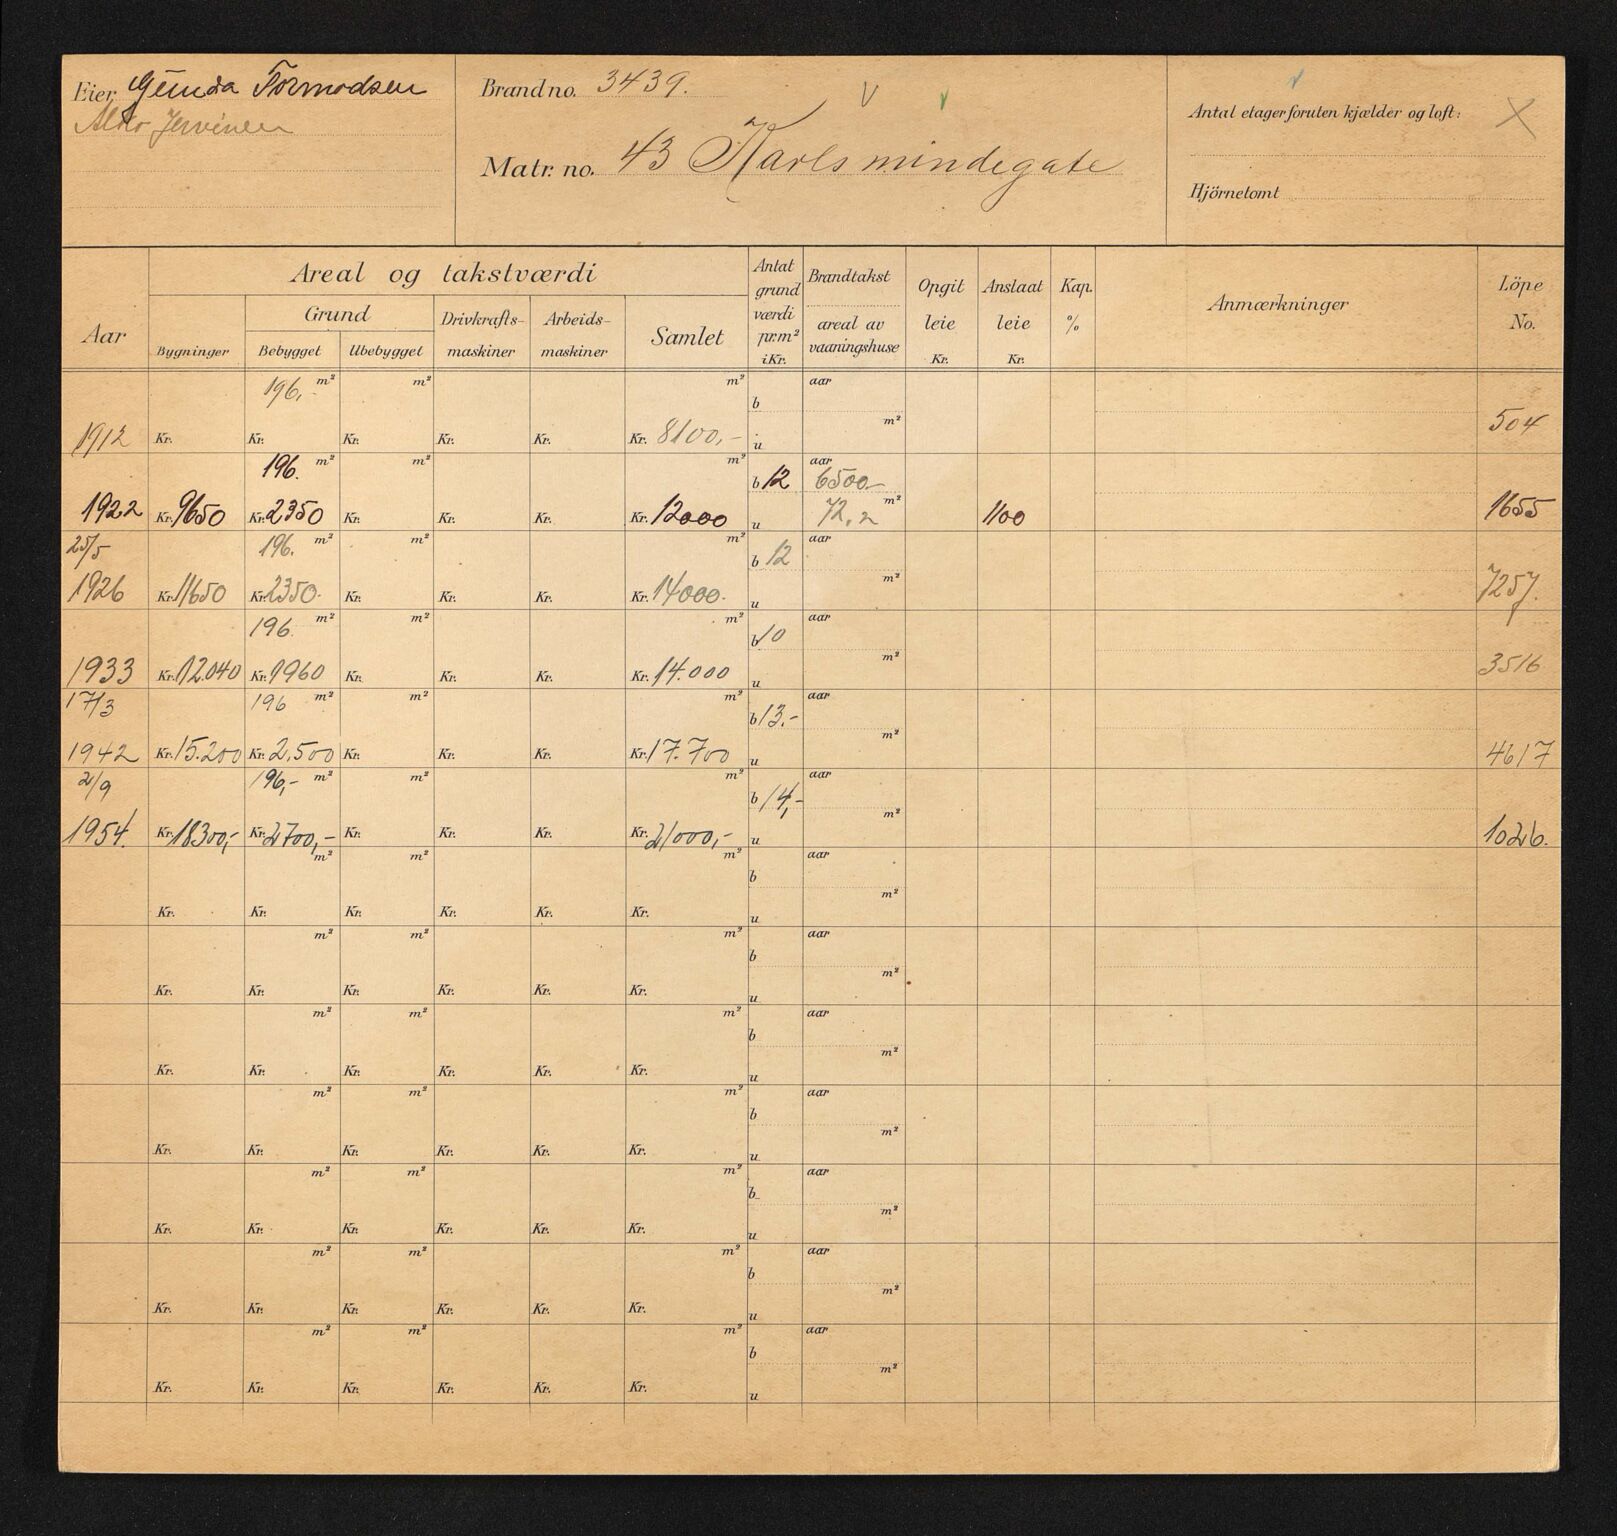 Eier Gunda Tormodsen
Brand no. 3439.
Antal etager foruten kjælder og loft:
Matr. no. 43 Karlsmindegate
Hjörnetomt
Aar
Areal og takstværdi
Grund
Bygninger
Bebygget
Ubebygget
Drivkrafts-
maskiner
Arbeids-
maskiner
Samlet
Antat
grund
værdi
pr. m²
i Kr.
Brandtakst
areal av
vaaningshuse
Opgit
leie
Kr.
Anslaat
leie
Kr.
Kap.
%
Anmærkninger
Löpe
No.
196,- m² m² m² b aar
m²
1912 Kr. Kr. Kr. Kr. Kr. Kr. 8100,- u 504
196. m² m² m² b 12 aar 6500.-
72,2 m²
1922 Kr. 9650 Kr. 2350 Kr. Kr. Kr. Kr. 12000 u 1100 1655
25/5 196. m² m² m² b 12 aar
m²
1926 Kr. 11650 Kr. 2350.- Kr. Kr. Kr. Kr. 14000.- u 7257.
196. m² m² m² b 10 aar
m²
1933 Kr. 12.040 Kr. 1960 Kr. Kr. Kr. Kr. 14.000 u 3516
17/3 196 m² m² m² b 13.- aar
m²
1942 Kr. 15.200 Kr. 2.500 Kr. Kr. Kr. Kr. 17.700 u 4617
2/9 196,- m² m² m² b 14,- aar
m²
1954. Kr. 18300,- Kr. 2700,- Kr. Kr. Kr. Kr. 21000,- u 1026.
m² m² m² b aar
m²
Kr. Kr. Kr. Kr. Kr. Kr. u
m² m² m² b aar
m²
Kr. Kr. Kr. Kr. Kr. Kr. u
m² m² m² b aar
m²
Kr. Kr. Kr. Kr. Kr. Kr. u
m² m² m² b aar
m²
Kr. Kr. Kr. Kr. Kr. Kr. u
m² m² m² b aar
m²
Kr. Kr. Kr. Kr. Kr. Kr. u
m² m² m² b aar
m²
Kr. Kr. Kr. Kr. Kr. Kr. u
m² m² m² b aar
m²
Kr. Kr. Kr. Kr. Kr. Kr. u